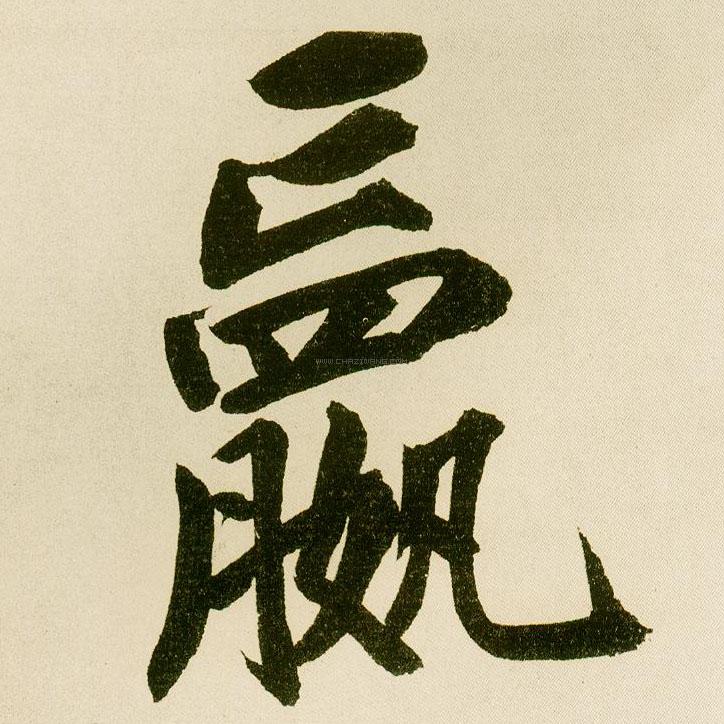 嬴
WWW.CHAZIWANG.COM